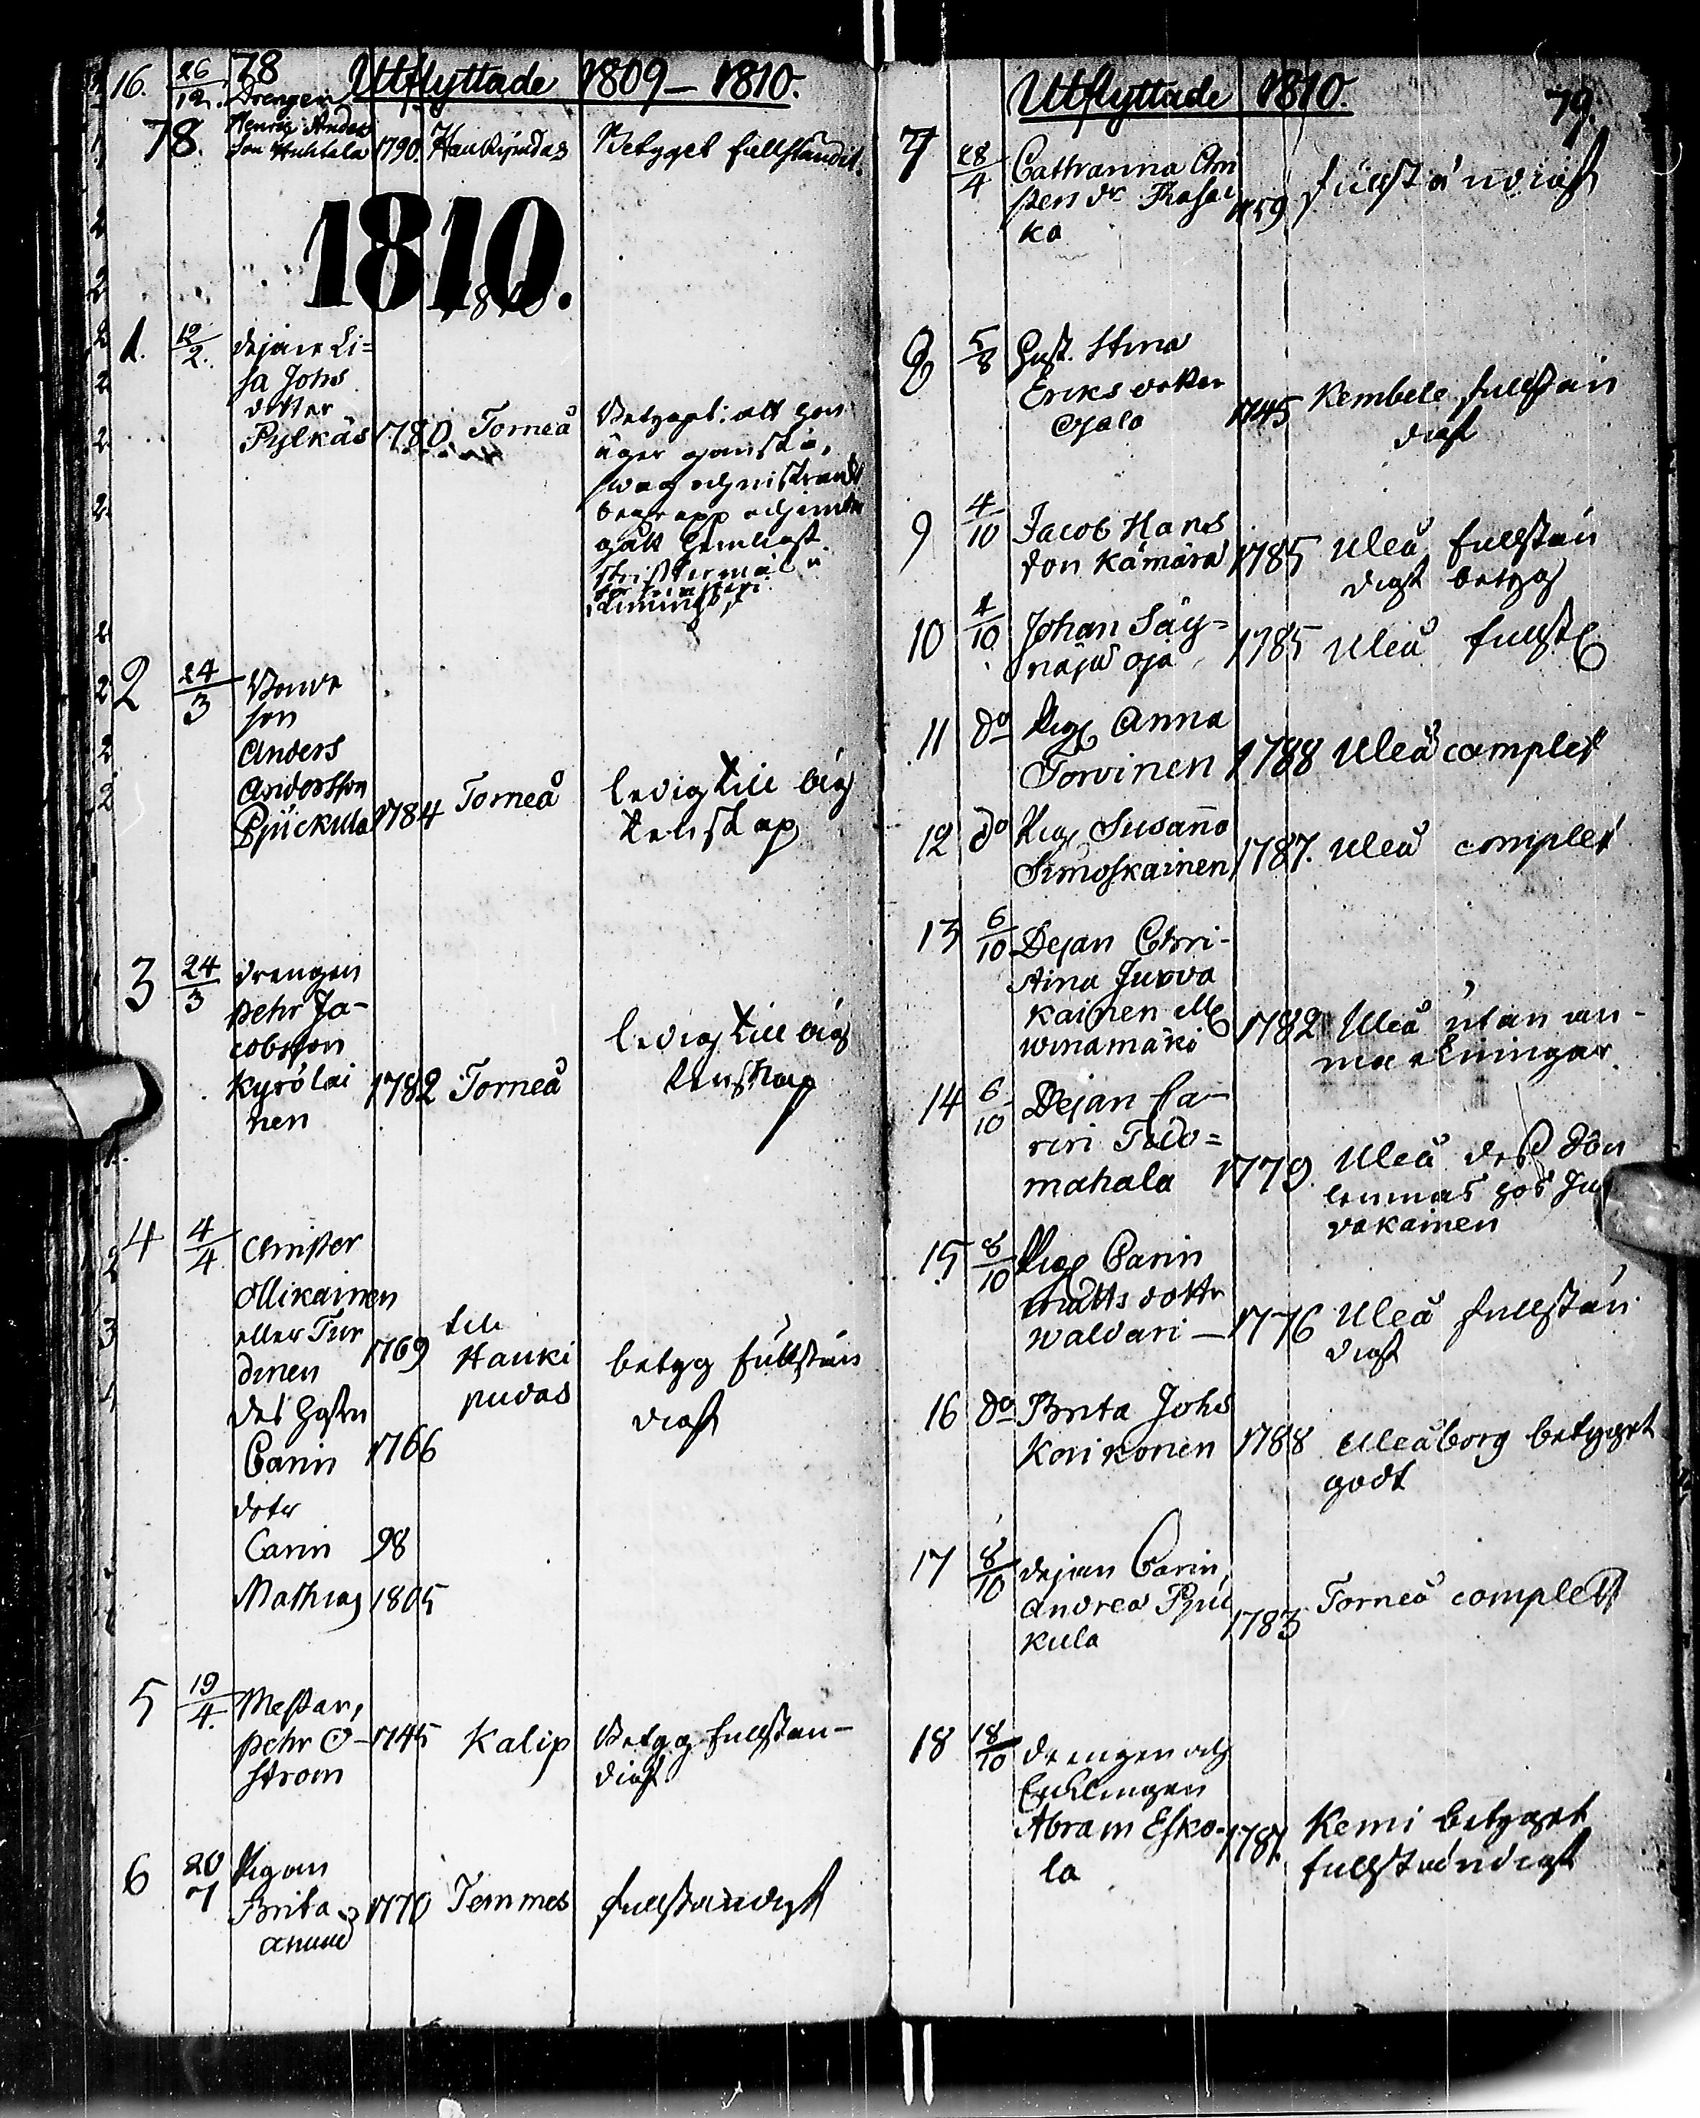 78
Utflyttade 1809–1810.
16. 26/12. Drengen
Henric Anders
son Huhtala 1790. Haukipudas Betyget fullständit.
78.
1810.
1810
1. 12/2. dejan Li=
sa Johs
dotter
Pylkäs 1780. Torneå
Betyget: att hon
äger ganska
swag christendoms
begrepp
gått
2 24/3 Bonde
son
Anders
Andersson
Pjuckula 1784 Torneå ledig till äg
tenskap
3 24/3 drengen
Pehr Ja-
cobsson
Kyrölai 1782 Torneå ledig till äg
nen tenskap
4 4/4 Christer
Ollikainen
eller Tur
dinen 1769 till
Hauki
pudas betyg fullstän
digt
des hustru
Carin 1766
dotr
Carin 98
Mathias 1805
5 19/4. Mestar,
Pehr Ö- 1745 Kalip Betyg fullstän-
strom digt
6 20/7 Pigan
Brita 1770 Temmes fullständigt
Utflyttade 1810.
79.
7 28/4 Cathranna Chri
sters dr
ka 1759 fullständigt
8 5/8 Hust. Stina
Eriks dotter
Ojala 1745 Kembele fullstän
digt
9 4/10 Jacob Hans
son Kämärä 1785 Uleå fullstän
digt betyg
10 4/10 Johan Säy=
näjä oja 1785 Uleå fullst
11 do Pig Anna
Torvinen 1788 Uleå complet
12 do Pig Susanna
Simoskainen 1787. Uleå complet
13 6/10 Dejan Chri-
stina Juvva
kainen ell
winamäki 1782 Uleå utan an-
märkningar.
14 6/10 Dejan Ca-
rin
mahala 1779. Uleå
hos Ju
vakainen
15 8/10 Pig Carin
Matts dottr
Waldari – 1776 Uleå fullstän
digt
16 do Brita Johs
Korikonen 1788 Uleåborg betyget
godt
17 8/10 dejan Carin,
Andrea Pjuc
kula 1783 Torneå complett
18 18/10 drengen och
Enklingen
Abram Esko-
la 1781. Kemi betyget
fullständigt